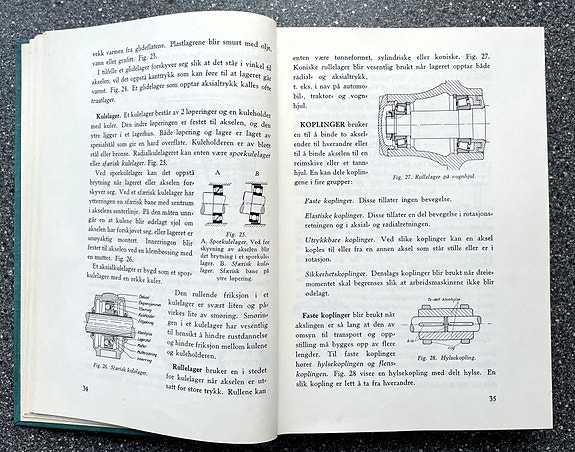 vekk varmen fra glideflatene. Plastlagrene blir smurt med olje,
vann eller grafitt. Fig. 23.
I tilfelle et glidelager forskyver seg slik at det står i vinkel til
akselen, vil det oppstå kanttrykk som kan føre til at lageret går
varmt. Fig. 24. Et glidelager som opptar aksialtrykk kalles ofte
trustlager.
Kulelager. Et kulelager består av 2 løperinger og en kuleholder
med kuler. Den indre løperingen er festet til akselen, og den
ytre ligger i et lagerhus. Både løpering og lager er laget av
spesialstål som gir en hard overflate. Kuleholderen er av bløtt
stål eller bronse. Radialkulelageret kan enten være sporkulelager
eller sfærisk kulelager. Fig. 25.
Ved sporkulelager kan det oppstå
brytning når lageret eller akselen for-
skyver seg. Ved et sfærisk kulelager har
ytterringen en sfærisk bane med sentrum
i akselens senterlinje. På den måten unn-
går en at kulene blir ødelagt sjøl om
akselen har forskjøvet seg, eller lageret er
unøyaktig montert. Innerringen blir
festet til akselen ved en klembøssing med
en mutter. Fig. 26.
Et aksialkulelager er bygd som et spor-
kulelager med en rekke kuler.
A B
Fig. 25.
A. Sporkulelager. Ved for-
skyvning av akselen blir
det brytning i et sporkule-
lager. B. Sfærisk kule-
lager. Sfærisk bane på
ytre løpering.
Deksel
Ytterring
Kuleholder
Filtpakning
Lagerstol
Mutter
Innerring
Fig. 26. Sfærisk kulelager.
Den rullende friksjon i et
kulelager er svært liten og på-
virkes lite av smøring. Smørin-
gen i et kulelager har vesentlig
til hensikt å hindre rustdannelse
og hindre friksjon mellom kulene
og kuleholderen.
Rullelager bruker en i stedet
for kulelager når akselen er ut-
satt for store trykk. Rullene kan
34
enten være tønneformet, sylindriske eller koniske. Fig. 27.
Koniske rullelager blir vesentlig brukt når lageret opptar både
radial- og aksialtrykk,
t. eks. i nav på automo-
bil-, traktor- og vogn-
hjul.
KOPLINGER bruker
en til å binde to aksel-
ender til hverandre eller
til å binde akselen til en
reimskive eller et tann-
hjul. En kan dele koplin-
gene i fire grupper:
Fig. 27. Rullelager på vognhjul.
Faste koplinger. Disse tillater ingen bevegelse.
Elastiske koplinger. Disse tillater en del bevegelse i rotasjons-
retningen og i aksial- og radialretningen.
Utrykkbare koplinger. Ved slike koplinger kan en aksel
koples til eller fra en annen aksel som står stille eller er i
rotasjon.
Sikkerhetskoplinger. Denslags koplinger blir brukt når dreie-
momentet skal begrenses slik at arbeidsmaskinene ikke blir
ødelagt.
Faste koplinger blir brukt når
akslingen er så lang at den av
omsyn til transport og opp-
stilling må bygges opp av flere
lengder. Til faste koplinger
hører hylsekoplingen og flens-
koplingen. Fig. 28 viser en hylsekopling med delt hylse. En
slik kopling er lett å ta fra hverandre.
To-delt klemhylse
Kile
Fig. 28. Hylsekopling.
35